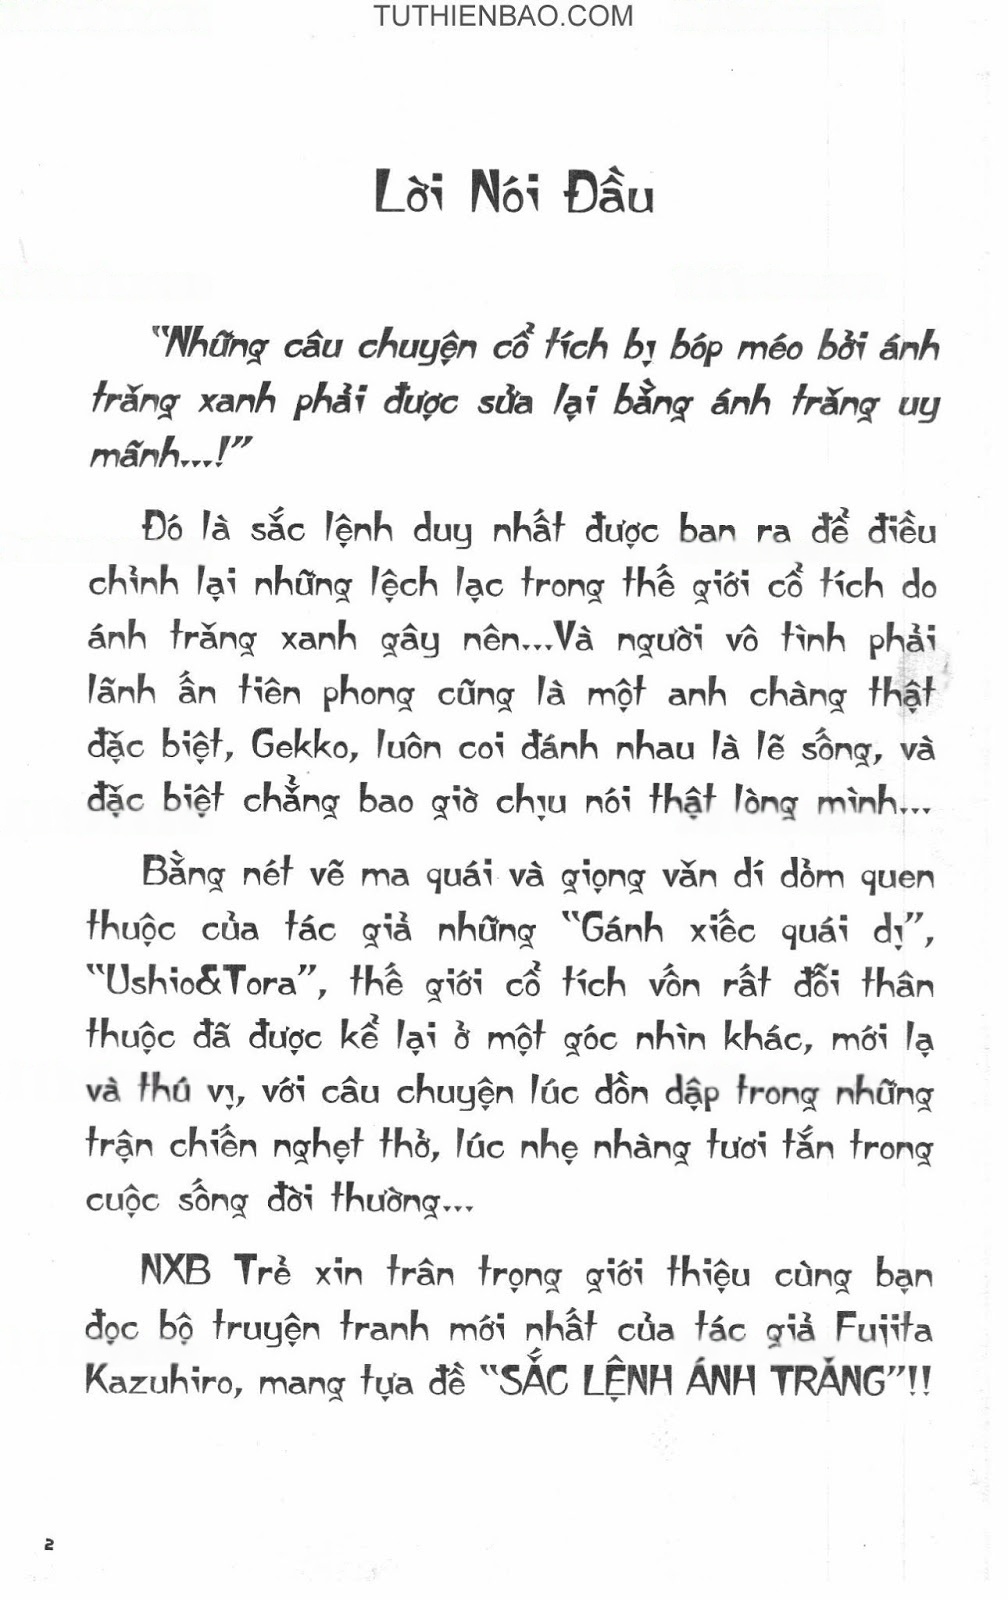 TUTHIENBAO.COM
Lời Nói Đầu
“Những câu chuyện cổ tích bị bóp méo bởi ánh
trăng xanh phải được sửa lại bằng ánh trăng uy
mãnh...!”
Đó là sắc lệnh duy nhất được ban ra để điều
chỉnh lại những lệch lạc trong thế giới cổ tích do
ánh trăng xanh gây nên...Và người vô tình phải
lãnh ấn tiên phong cũng là một anh chàng thật
đặc biệt, Gekko, luôn coi đánh nhau là lẽ sống, và
đặc biệt chẳng bao giờ chịu nói thật lòng mình...
Bằng nét vẽ ma quái và giọng văn dí dỏm quen
thuộc của tác giả những “Gánh xiếc quái dị”,
“Ushio&Tora”, thế giới cổ tích vốn rất đỗi thân
thuộc đã được kể lại ở một góc nhìn khác, mới lạ
và thú vị, với câu chuyện lúc dồn dập trong những
trận chiến nghẹt thở, lúc nhẹ nhàng tươi tắn trong
cuộc sống đời thường...
NXB Trẻ xin trân trọng giới thiệu cùng bạn
đọc bộ truyện tranh mới nhất của tác giả Fujita
Kazuhiro, mang tựa đề “SẮC LỆNH ÁNH TRĂNG”!!
2